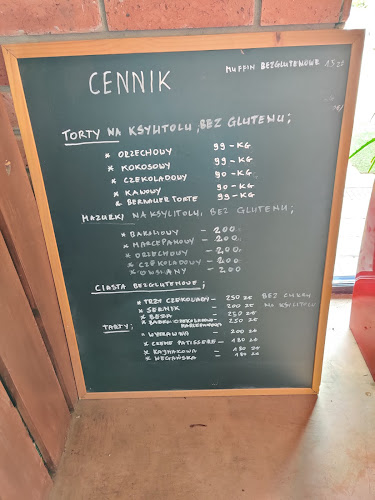 CENNIK
MUFFIN BEZGLUTENOWE 15 ZŁ
TORTY NA KSYLITOLU, BEZ GLUTENU;
* ORZECHOWY 99-KG
* KOKOSOWY 99-KG
* CZEKOLADOWY 90-KG
* KAWOWY 90-KG
& BERNAUER TORTE 99-KG
MAZURKI NA KSYLITOLU, BEZ GLUTENU;
* BAKALIOWY - 200
* MARCEPANOWY - 200
* ORZECHOWY - 200
* CZEKOLADOWY - 200
* OWSIANY - 200
CIASTA BEZGLUTENOWE;
* TRZY CZEKOLADY - 250 ZŁ BEZ CUKRU
* SERNIK - 200 ZŁ NA KSYLITOLU
* BEZA - 250 ZŁ
* - 250 ZŁ
MARCEPANOWA
TARTY;
* - 200 ZŁ
* CREME PATISSERE - 180 ZŁ
* KAJMAKOWA - 180 ZŁ
* WEGAŃSKA - 180 ZŁ